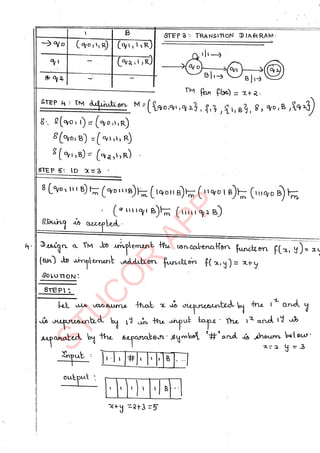 1 B
→q0 (q0,1,R) (q1,1,R)
q1 - (q2,1,R)
* q2 - -
STEP 3 : TRANSITION DIAGRAM
1|1→
q0 q1 q2
B|1→ B|1→
TM for f(x) = x+2.
STEP 4 : TM definition M = ({q0,q1,q2}, {1}, {1,B}, δ, q0, B, {q2})
δ: δ(q0,1) = (q0,1,R)
δ(q0,B) = (q1,1,R)
δ(q1,B) = (q2,1,R)
STEP 5: ID x=3
δ(q0,111B) ⊢m (1q011B) ⊢m (11q01B) ⊢m (111q0B) ⊢m
(1111q1B) ⊢m (11111q2B)
String is accepted.
4. Design a TM to implement the concatenation function f(x,y) = xy
(or) to implement addition function f(x,y) = x+y
SOLUTION:
STEP1:
Let us assume that x is represented by the 1's and y
is represented by 1's in the input tape. The 1's and 1's is
separated by the separator symbol '#' and is shown below.
x=2 y=3
Input : 1 1 # 1 1 1 B ..
output : 1 1 1 1 1 B ..
x+y = 2+3 = 5
STUCOR APP